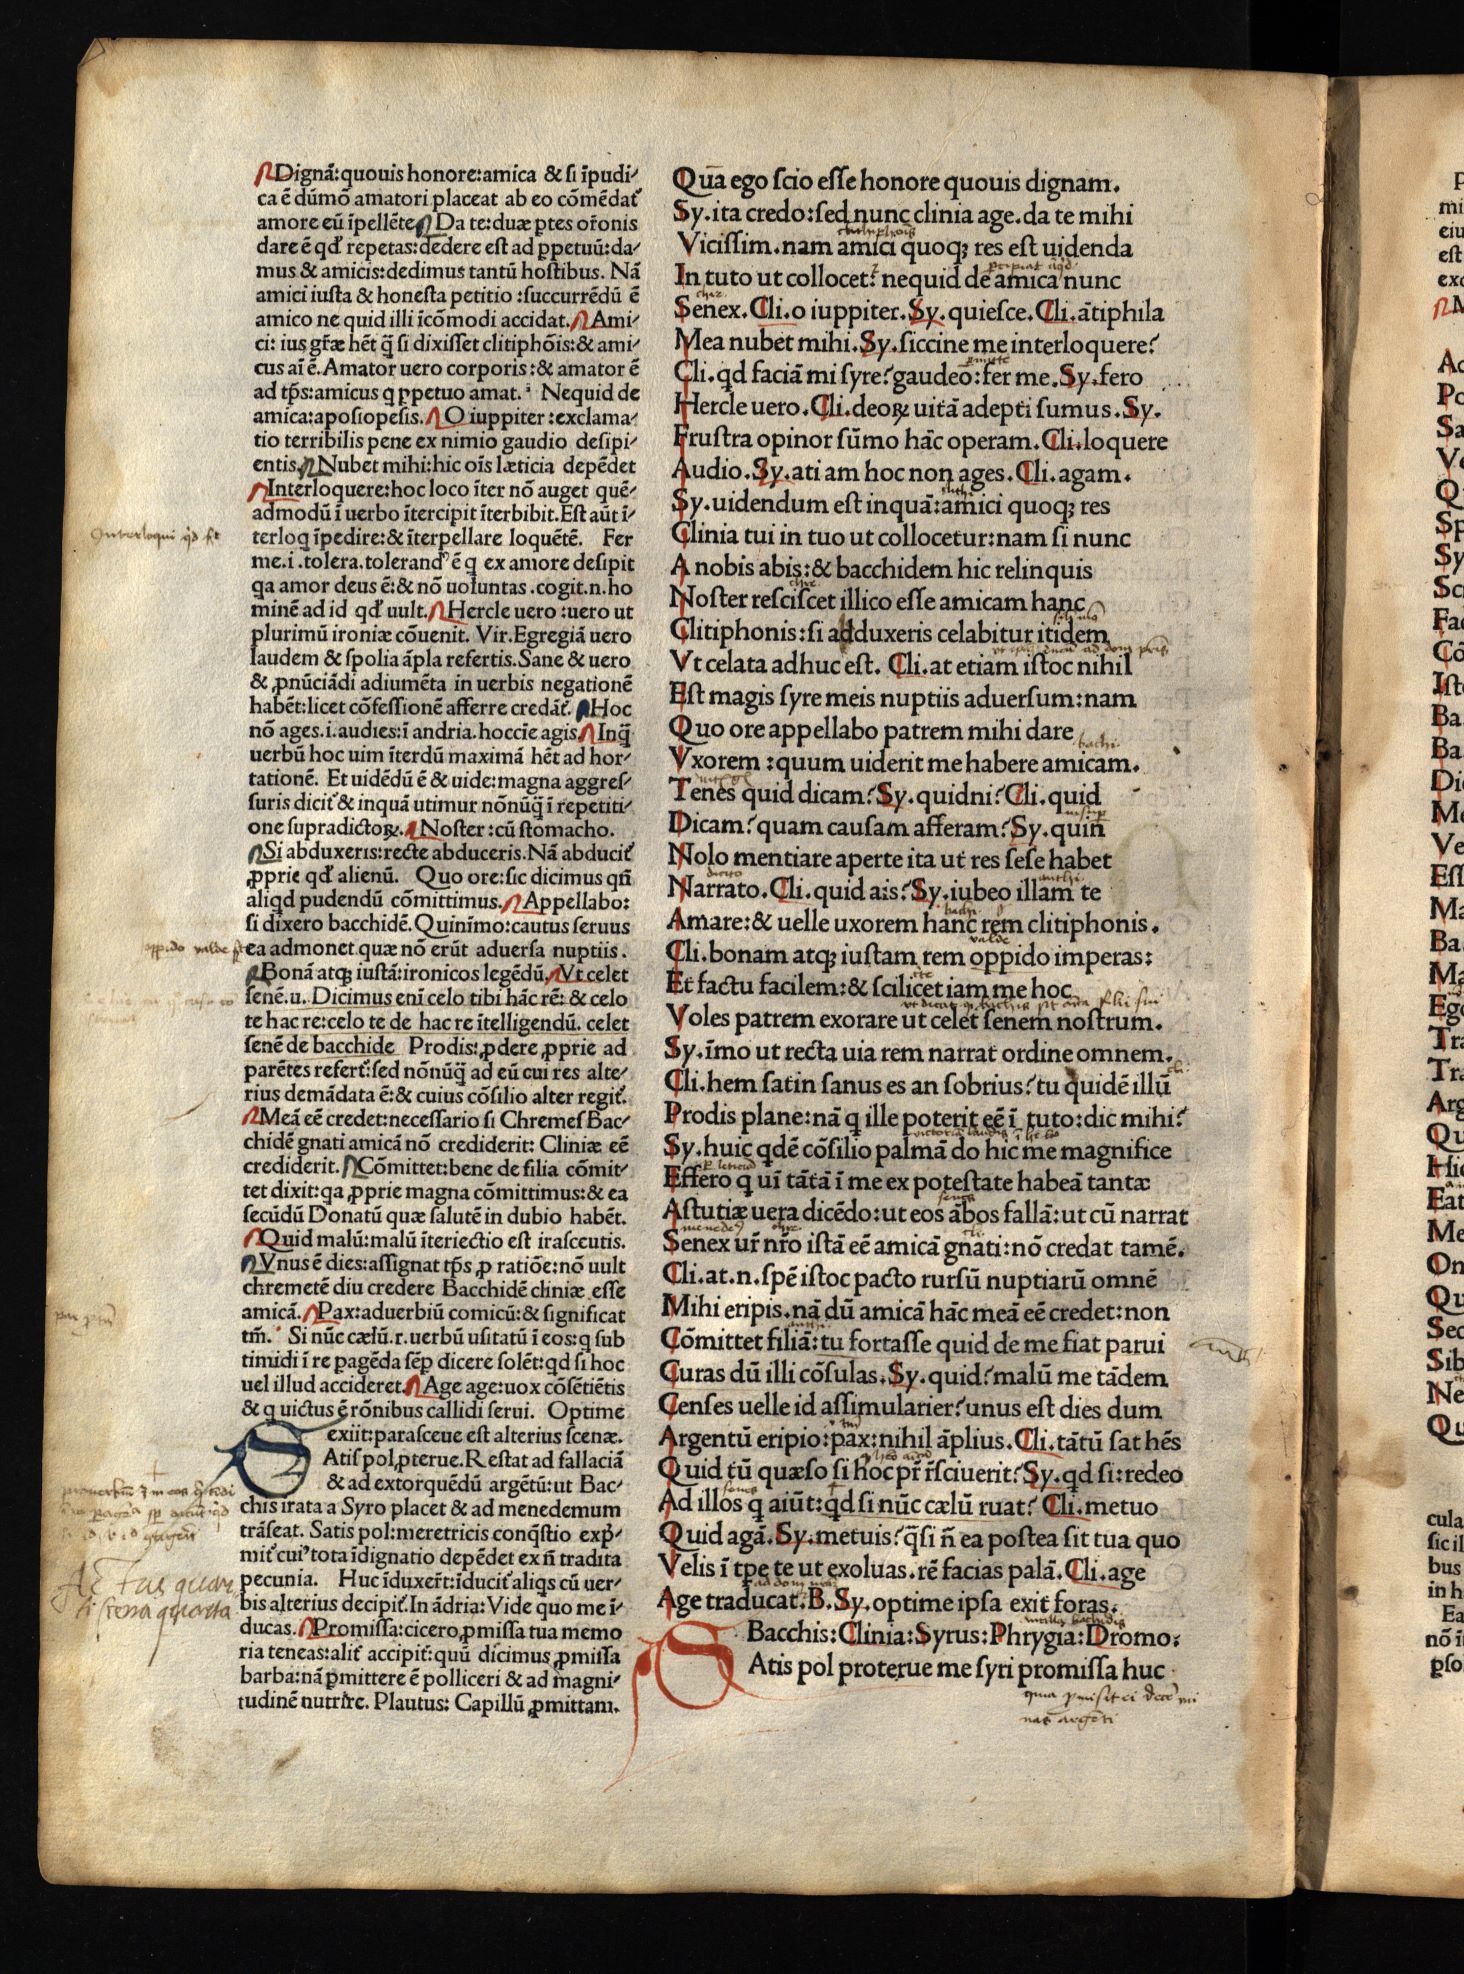 Dignã: quouis honore: amica & si ĩpudi-
ca ẽ dũmõ amatori placeat ab eo cõmẽdat᷑
amore eũ ĩpellẽte. Da te: duæ ꝑtes or̃onis
dare ẽ qd' repetas: dedere est ad ꝑpetuũ: da-
mus & amicis: dedimus tantũ hostibus. Nã
amici iusta & honesta petitio: succurrẽdũ ẽ
amico ne quid illi ĩcõmodi accidat. Ami-
ci: ius gr̃æ hẽt q̃ si dixisset clitiphõis: & ami-
cus ai ẽ. Amator uero corporis: & amator ẽ
ad tp̃s: amicus q ꝑpetuo amat. Nequid de
amica: aposiopesis. O iuppiter: exclama-
tio terribilis pene ex nimio gaudio desipi-
entis. Nubet mihi: hic oĩs læticia depẽdet
Interloquere: hoc loco ĩter nõ auget quẽ-
admodũ ĩ uerbo ĩtercipit ĩterbibit. Est aũt ĩ-
terloq ĩpedire: & ĩterpellare loquẽtẽ. Fer
me. i. tolera. tolerand⁹ ẽ q ex amore desipit
qa amor deus ẽ: & nõ uoluntas. cogit. n. ho
minẽ ad id qd' uult. Hercle uero: uero ut
plurimũ ironiæ cõuenit. Vir. Egregiã uero
laudem & spolia ãpla refertis. Sane & uero
& ꝓnũciãdi adiumẽta in uerbis negationẽ
habẽt: licet cõfessionẽ afferre credãt᷑. Hoc
nõ ages. i. audies: ĩ andria. hoccie agis. Inq̃
uerbũ hoc uim ĩterdũ maximã hẽt ad hor-
tationẽ. Et uidẽdũ ẽ & uide: magna aggres-
suris dicit᷑ & inquã utimur nõnũq̃ ĩ repetiti-
one supradictoꝝ. Noster: cũ stomacho.
Si abduxeris: recte abduceris. Nã abducit᷑
ꝓprie qd' alienũ. Quo ore: sic dicimus qñ
aliqd pudendũ cõmittimus. Appellabo:
si dixero bacchidẽ. Quinĩmo: cautus seruus
ea admonet quæ nõ erũt aduersa nuptiis.
Bonã atqꝫ iustã: ironicos legẽdũ. Vt celet
senẽ. u. Dicimus enĩ celo tibi hãc rẽ: & celo
te hac re: celo te de hac re ĩtelligendũ. celet
senẽ de bacchide Prodis: ꝓdere ꝓprie ad
parẽtes refert᷑: sed nõnũq̃ ad eũ cui res alte-
rius demãdata ẽ: & cuius cõsilio alter regit᷑.
Meã eẽ credet: necessario si Chremes Bac-
chidẽ gnati amicã nõ crediderit: Cliniæ eẽ
crediderit. Cõmittet: bene de filia cõmit-
tet dixit: qa ꝓprie magna cõmittimus: & ea
secũdũ Donatũ quæ salutẽ in dubio habẽt.
Quid malũ: malũ ĩteriectio est irasceutis.
Vnus ẽ dies: assignat tp̃s ꝓ ratiõe: nõ uult
chremetẽ diu credere Bacchidẽ cliniæ esse
amicã. Pax: aduerbiũ comicũ: & significat
tm̃. Si nũc cælũ. r. uerbũ usitatũ ĩ eos: q sub
timidi ĩ re pagẽda sẽp dicere solẽt: qd si hoc
uel illud accideret. Age age: uox cõsẽtiẽtis
& q uictus ẽ rõnibus callidi serui. Optime
exiit: parasceue est alterius scenæ.
SAtis pol ꝓterue. Restat ad fallaciã
& ad extorquẽdũ argẽtũ: ut Bac-
chis irata a Syro placet & ad menedemum
trãseat. Satis pol: meretricis conq̃stio exp̃-
mit᷑ cui⁹ tota ĩdignatio depẽdet ex ñ tradita
pecunia. Huc ĩduxer̃t: ĩducit᷑ aliqs cũ uer-
bis alterius decipit᷑. In ãdria: Vide quo me ĩ-
ducas. Promissa: cicero ꝓmissa tua memo
ria teneas: alit᷑ accipit᷑: quũ dicimus ꝓmissa
barba: nã ꝑmittere ẽ polliceri & ad magni-
tudinẽ nutrire. Plautus: Capillũ ꝓmittam.
Interloqui qd est
oppido valde
Actus quar
ti scena quarta
Quã ego scio esse honore quouis dignam.
Sy. ita credo: sed nunc clinia age. da te mihi
Vicissim. nam amici quoqꝫ res est uidenda
In tuto ut collocet᷑: nequid de amica nunc
Senex. Cli. o iuppiter. Sy. quiesce. Cli. ãtiphila
Mea nubet mihi. Sy. siccine me interloquere?
Cli. qd faciã mi syre? gaudeo: fer me. Sy. fero
Hercle uero. Cli. deoꝝ uitã adepti sumus. Sy.
Frustra opinor sũmo hãc operam. Cli. loquere
Audio. Sy. ati am hoc non ages. Cli. agam.
Sy. uidendum est inquã: amici quoqꝫ res
Clinia tui in tuo ut collocetur: nam si nunc
A nobis abis: & bacchidem hic relinquis
Noster resciscet illico esse amicam hanc
Clitiphonis: si adduxeris celabitur itidem
Vt celata adhuc est. Cli. at etiam istoc nihil
Est magis syre meis nuptiis aduersum: nam
Quo ore appellabo patrem mihi dare
bachi
Vxorem: quum uiderit me habere amicam.
Tenes quid dicam? Sy. quidni? Cli. quid
Dicam? quam causam afferam? Sy. quin
Nolo mentiare aperte ita ut res sese habet
Narrato. Cli. quid ais? Sy. iubeo illam te
Amare: & uelle uxorem hanc rem clitiphonis.
valde
Cli. bonam atqꝫ iustam rem oppido imperas:
Et factu facilem: & scilicet iam me hoc
Voles patrem exorare ut celet senem nostrum.
Sy. ĩmo ut recta uia rem narrat ordine omnem.
Cli. hem satin sanus es an sobrius? tu quidẽ illũ
Prodis plane: nã q ille poterit eẽ ĩ tuto: dic mihi?
Sy. huic qdẽ cõsilio palmã do hic me magnifice
Effero q uĩ tãtã ĩ me ex potestate habeã tantæ
Astutiæ uera dicẽdo: ut eos ãbos fallã: ut cũ narrat
Senex ur̃ nr̃o istã eẽ amicã gnati: nõ credat tamẽ.
Cli. at. n. spẽ istoc pacto rursũ nuptiarũ omnẽ
Mihi eripis. nã dũ amicã hãc meã eẽ credet: non
Cõmittet filiã: tu fortasse quid de me fiat parui
Curas dũ illi cõsulas. Sy. quid? malũ me tãdem
Censes uelle id assimularier? unus est dies dum
Argentũ eripio: pax: nihil ãplius. Cli. tãtũ sat hẽs
Quid tũ quæso si hoc pr̃ r̃sciuerit? Sy. qd si: redeo
Ad illos q aiũt: qd si nũc cælũ ruat? Cli. metuo
Quid agã. Sy. metuis? q̃si ñ ea postea sit tua quo
Velis ĩ tpe te ut exoluas. rẽ facias palã. Cli. age
Age traducat᷑. B. Sy. optime ipsa exit foras.
Bacchis: Clinia: Syrus: Phrygia: Dromo:
SAtis pol proterue me syri promissa huc
quia pmisit ei decẽ mi
nas argẽti